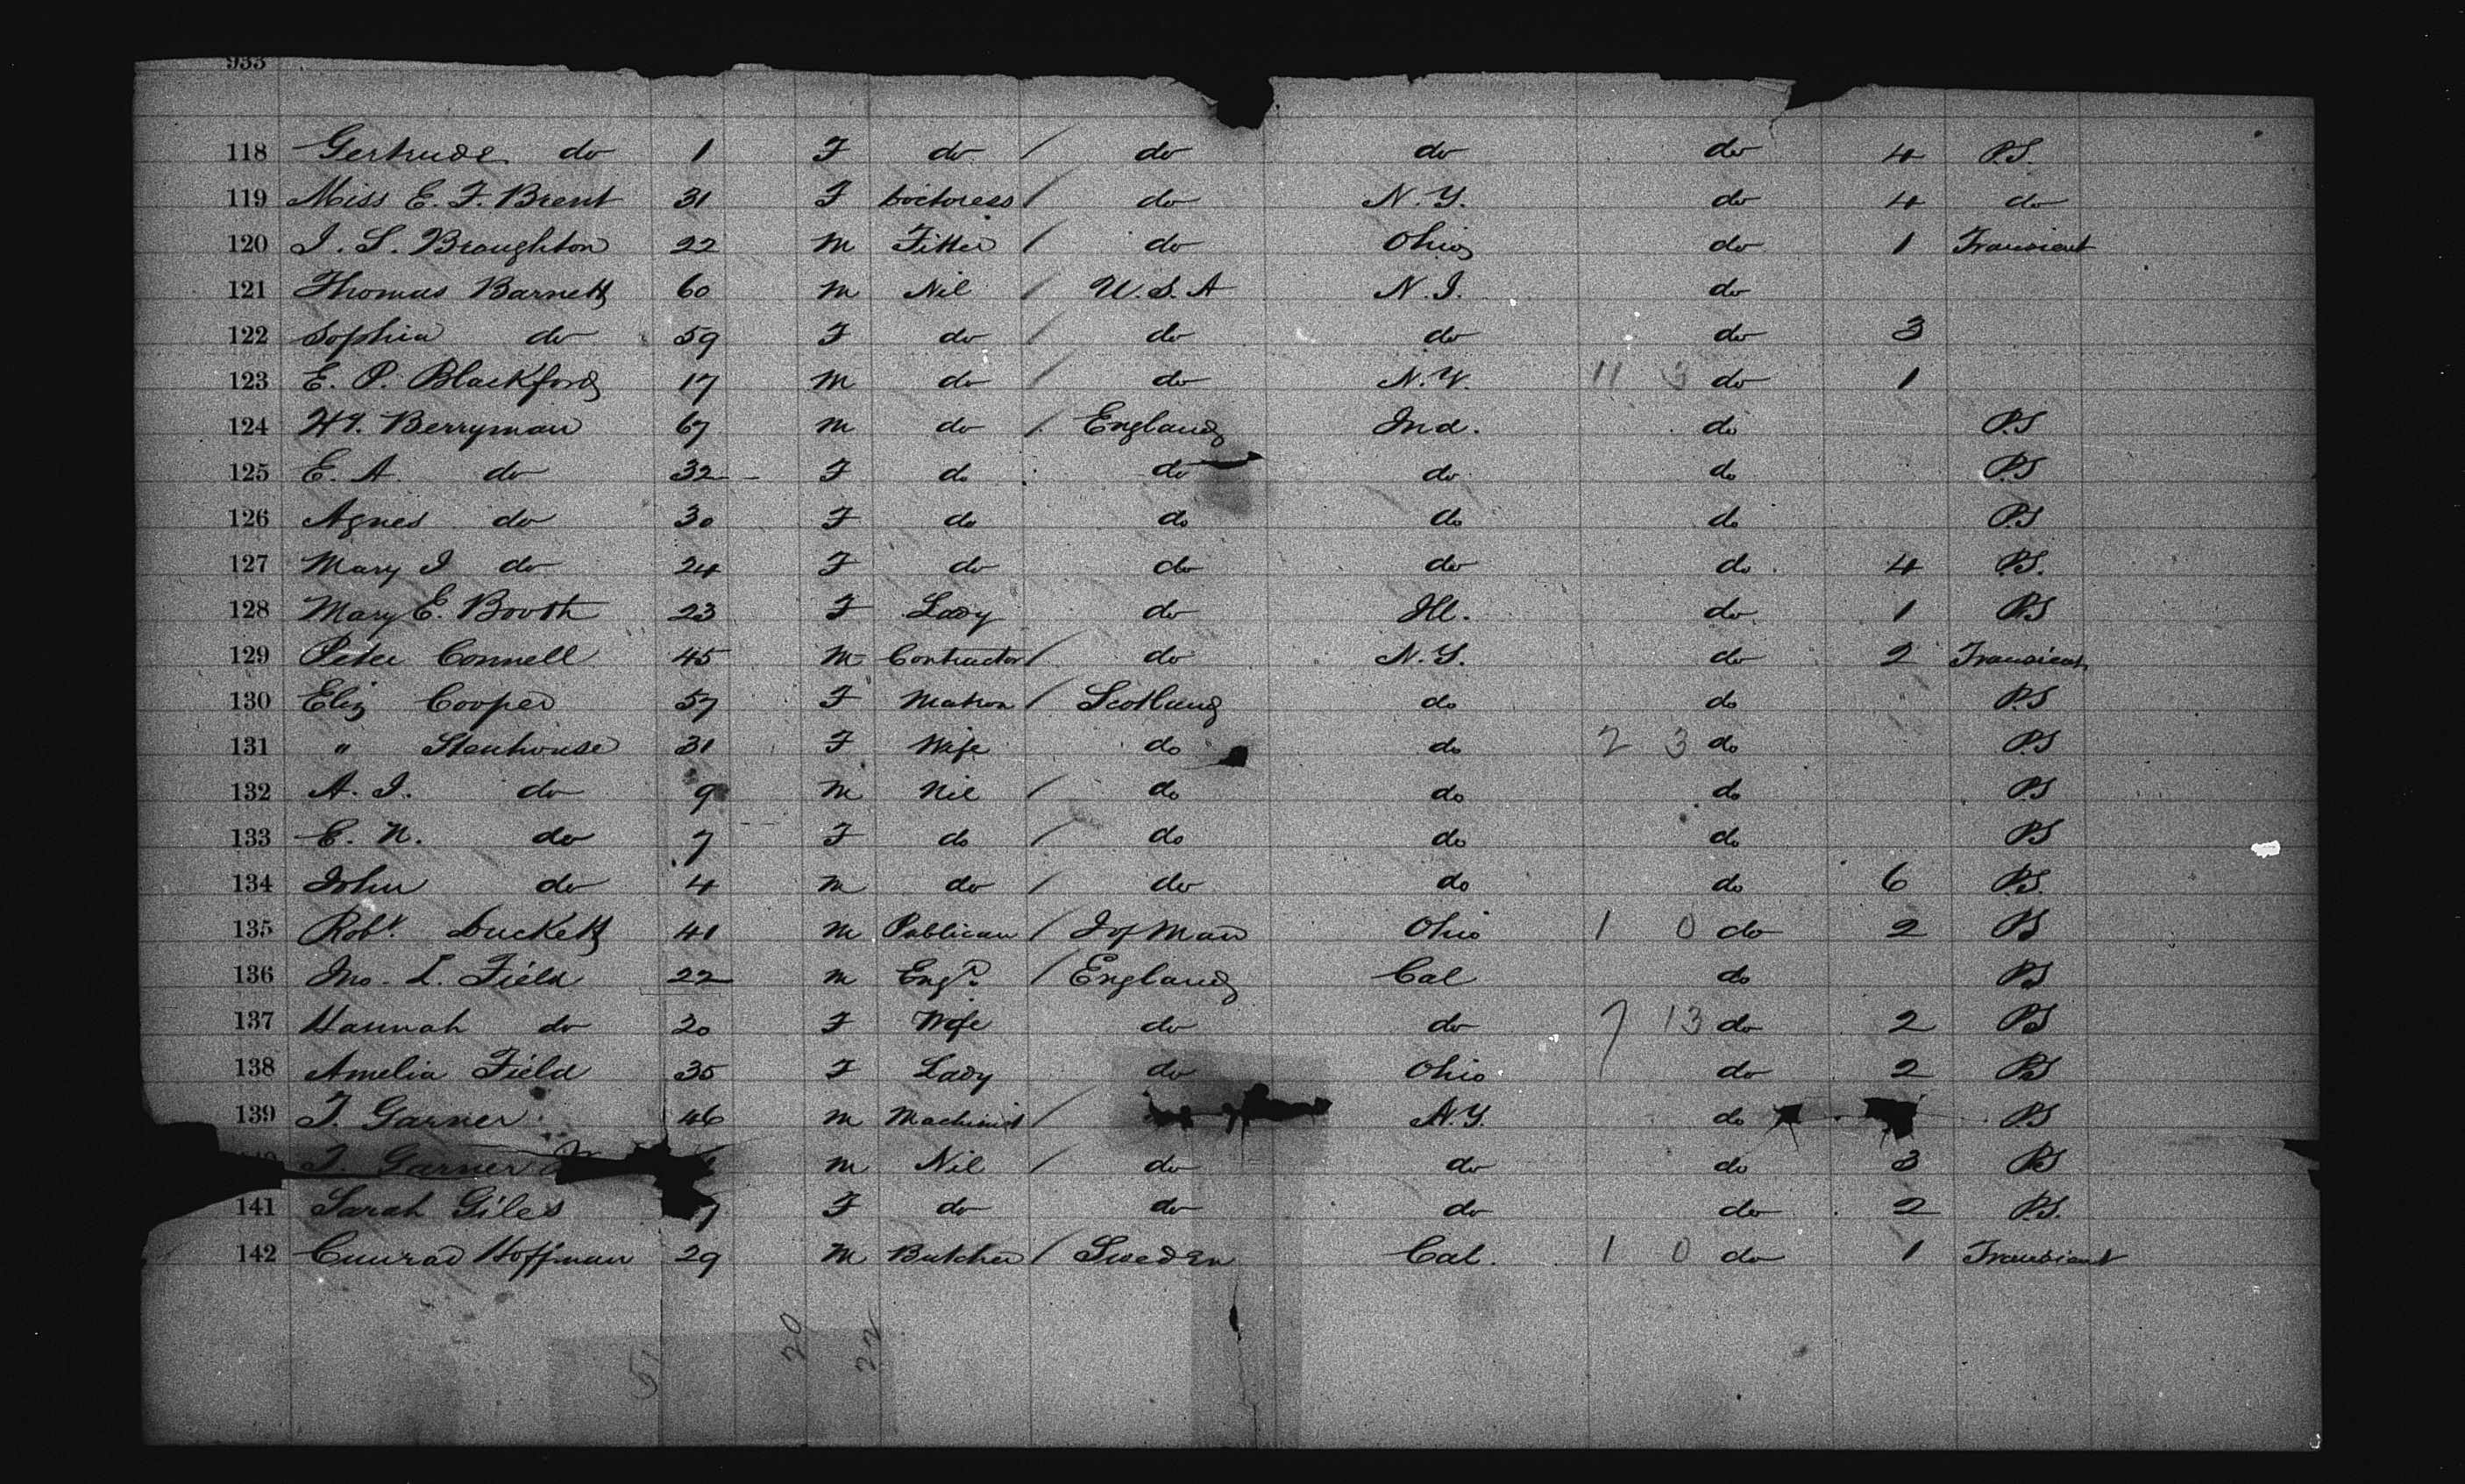 933
118 Gertrude do 1 F do / do do do 4 P.S.
119 Miss E. F. Brent 31 F Doctoress / do N.Y. do 4 do
120 J. S. Broughton 22 M Fitter / do Ohio do 1 Transient
121 Thomas Barnett 60 M Nil / U.S.A N.J. do
122 Sophia do 59 F do / do do do 3
123 E. P. Blackford 17 M do / do N.Y. 11 do 1
124 Berryman 67 M do / England Ind. do P.S
125 E. A. do 32 F do do do do P.S
126 Agnes do 30 F do do do do P.S
127 Mary J do 24 F do do do do 4 P.S.
128 Mary E. Booth 23 F Lady do Ill. do 1 P.S
129 Peter Connell 45 M Contractor / do N.Y. do 2 Transient
130 Eliz Cooper 57 F Matron / Scotland do do P.S
131 " Stenhouse 31 F Wife do do 2 3 do P.S
132 A. J. do 9 M Nil / do do do P.S
133 E. N. do 7 F do / do do do P.S
134 John do 4 M do / do do do 6 P.S.
135 Robt. Duckett 41 M Publican / I of Man Ohio 1 0 do 2 P.S
136 Jno. L. Field 22 M Engr. / England Cal do P.S
137 Hannah do 20 F Wife do do 7 13 do 2 P.S
138 Amelia Field 35 F Lady do Ohio do 2 P.S
139 T. Garner 46 M Machinist / N.Y. do P.S
T. Garner M Nil / do do do 3 P.S
141 Sarah Giles 7 F do do do do 2 P.S.
142 Cunrad Hoffman 29 M Butcher / Sweden Cal. 1 0 do 1 Transient
51 20 22